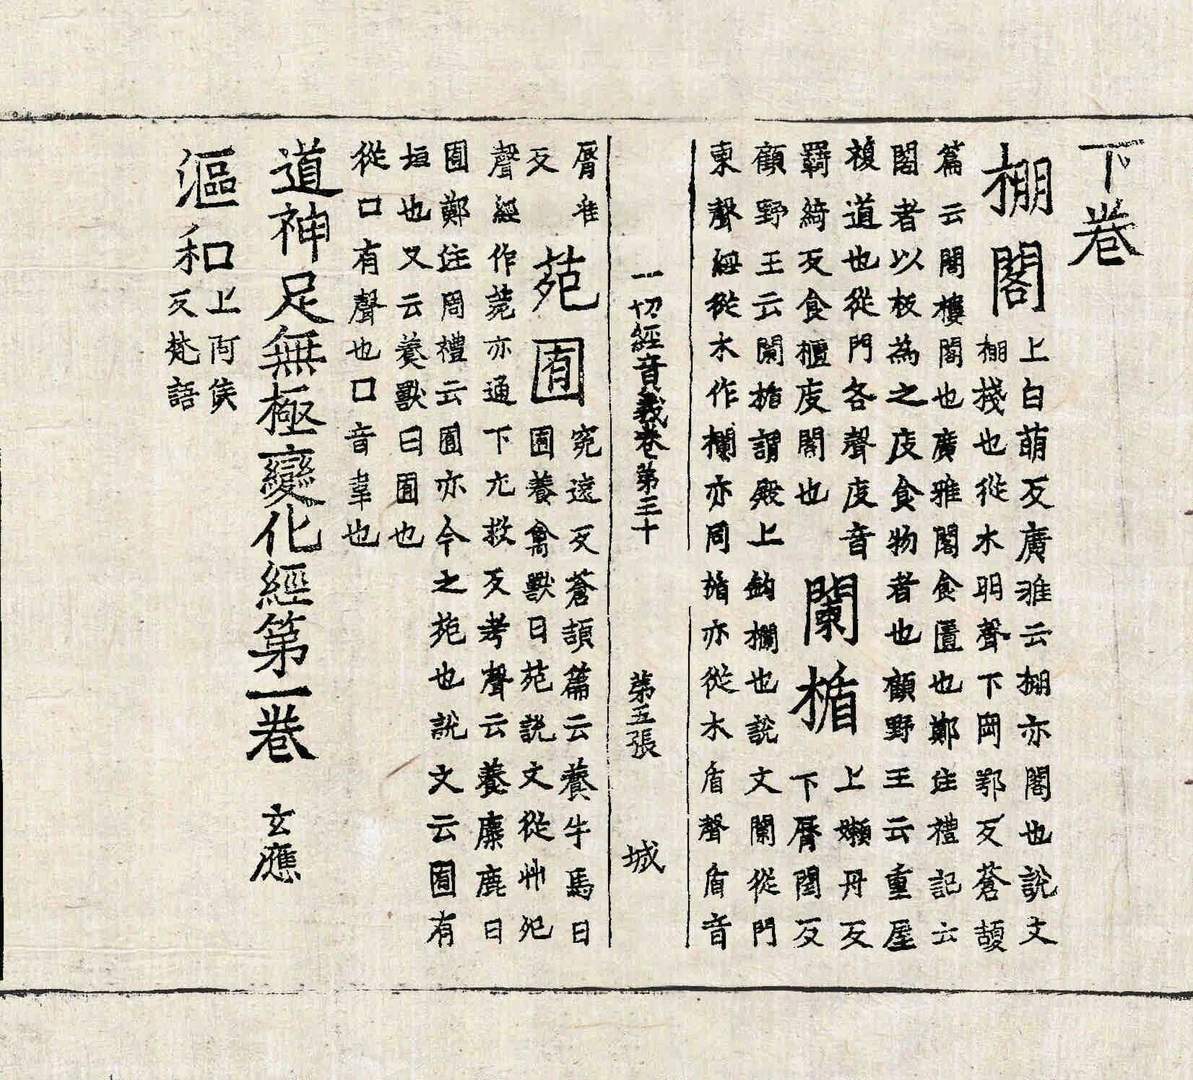 下卷
棚閣
上白萌反廣雅云棚亦閣也說文
棚棧也從木朋聲下岡鄂反蒼頡
篇云閣樓閣也廣雅閣食匱也鄭注禮記云
閣者以板為之庋食物者也顧野王云重屋
複道也從門各聲庋音
羇綺反食櫃庋閣也
闌楯
上嬾丹反
下脣閏反
顧野王云闌楯謂殿上鉤欄也說文闌從門
柬聲經從木作欄亦同楯亦從木盾聲盾音
一切經音義卷第三十 第五張 城
脣准
反
苑囿
宛遠反蒼頡篇云養牛馬曰
囿養禽獸曰苑說文從艸夗
聲經作菀亦通下尤救反考聲云養麋鹿曰
囿鄭注周禮云囿亦今之苑也說文云囿有
垣也又云養獸曰囿也
從囗有聲也囗音韋也
道神足無極變化經第一卷 玄應
漚和
上阿侯
反梵語